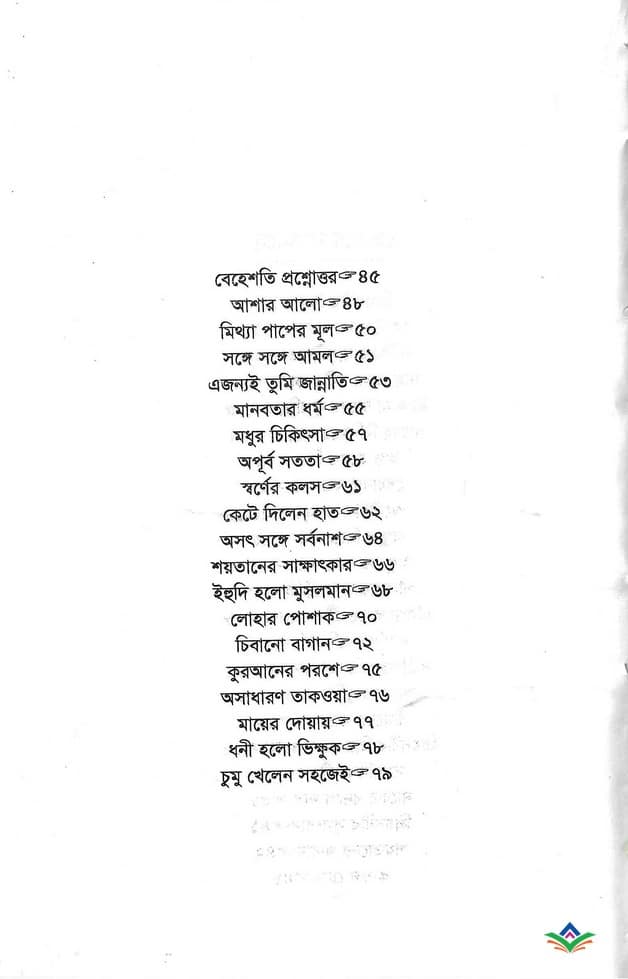 বেহেশতি প্রশ্নোত্তর☞৪৫
আশার আলো☞৪৮
মিথ্যা পাপের মূল☞৫০
সঙ্গে সঙ্গে আমল☞৫১
এজন্যই তুমি জান্নাতি☞৫৩
মানবতার ধর্ম☞৫৫
মধুর চিকিৎসা☞৫৭
অপূর্ব সততা☞৫৮
স্বর্ণের কলস☞৬১
কেটে দিলেন হাত☞৬২
অসৎ সঙ্গে সর্বনাশ☞৬৪
শয়তানের সাক্ষাৎকার☞৬৬
ইহুদি হলো মুসলমান☞৬৮
লোহার পোশাক☞৭০
চিবানো বাগান☞৭২
কুরআনের পরশে☞৭৫
অসাধারণ তাকওয়া☞৭৬
মায়ের দোয়ায়☞৭৭
ধনী হলো ভিক্ষুক☞৭৮
চুমু খেলেন সহজেই☞৭৯